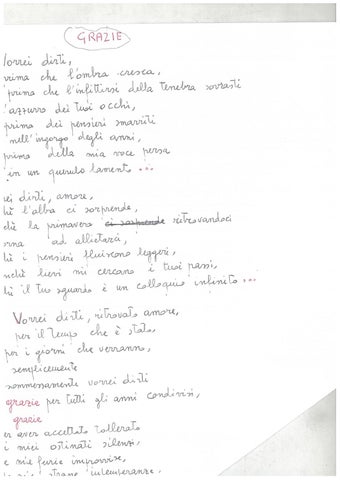 GRAZIE
Vorrei dirti,
prima che l'ombra cresca,
prima che l'infittirsi della tenebra sovrasti
l'azzurro dei tuoi occhi,
prima dei pensieri smarriti
nell'ingorgo degli anni,
prima della mia voce persa
in un querulo lamento ...
rei dirti, amore,
hé l'alba ci sorprende,
ché la primavera ci sorprende ritrovandoci
orna ad allietarci,
hé i pensieri fluiscono leggeri,
rché lievi mi cercano i tuoi passi,
hé il tuo sguardo è un colloquio infinito ...
Vorrei dirti, ritrovato amore,
per il tempo che è stato,
per i giorni che verranno,
semplicemente
sommessamente vorrei dirti
grazie per tutti gli anni condivisi,
grazie
er aver accettato tollerato
i miei ostinati silenzi,
e mie furie improvvise,
le mie strane intemperanze.